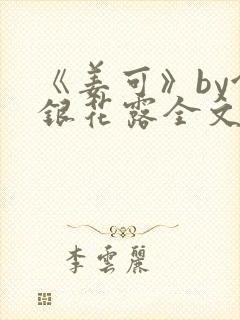 《姜可》by
銀花露全文
李雲麗